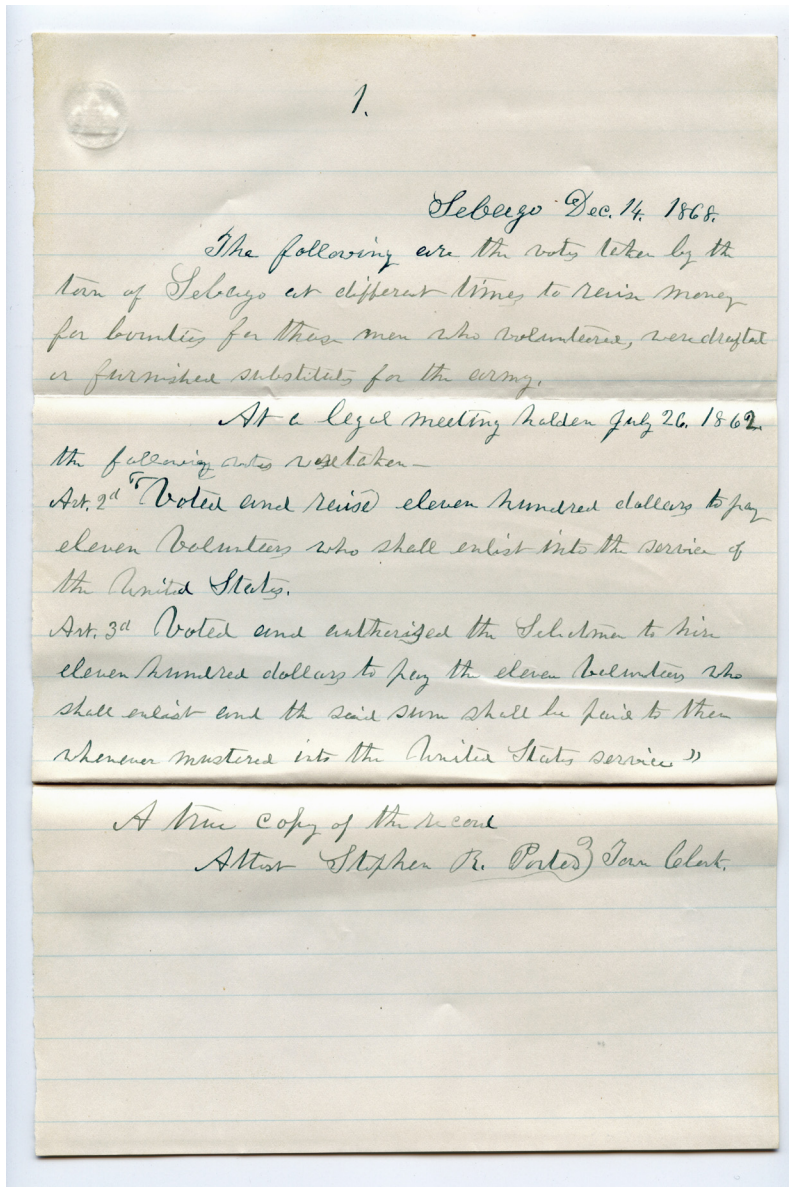 1.
Sebago Dec. 14. 1868.
The following are the votes taken by the
town of Sebago at different times to raise money
for bounties for those men who volunteered, were drafted
or furnished substitutes for the army.
At a legal meeting holden July 26. 1862
the following votes were taken—
Art. 2d "Voted and raised eleven hundred dollars to pay
eleven Volunteers who shall enlist into the service of
the United States.
Art. 3d Voted and authorized the Selectmen to hire
eleven hundred dollars to pay the eleven Volunteers who
shall enlist and the said sum shall be paid to them
whenever mustered into the United States service"
A true copy of the record
Attest Stephen R. Porter Town Clerk.